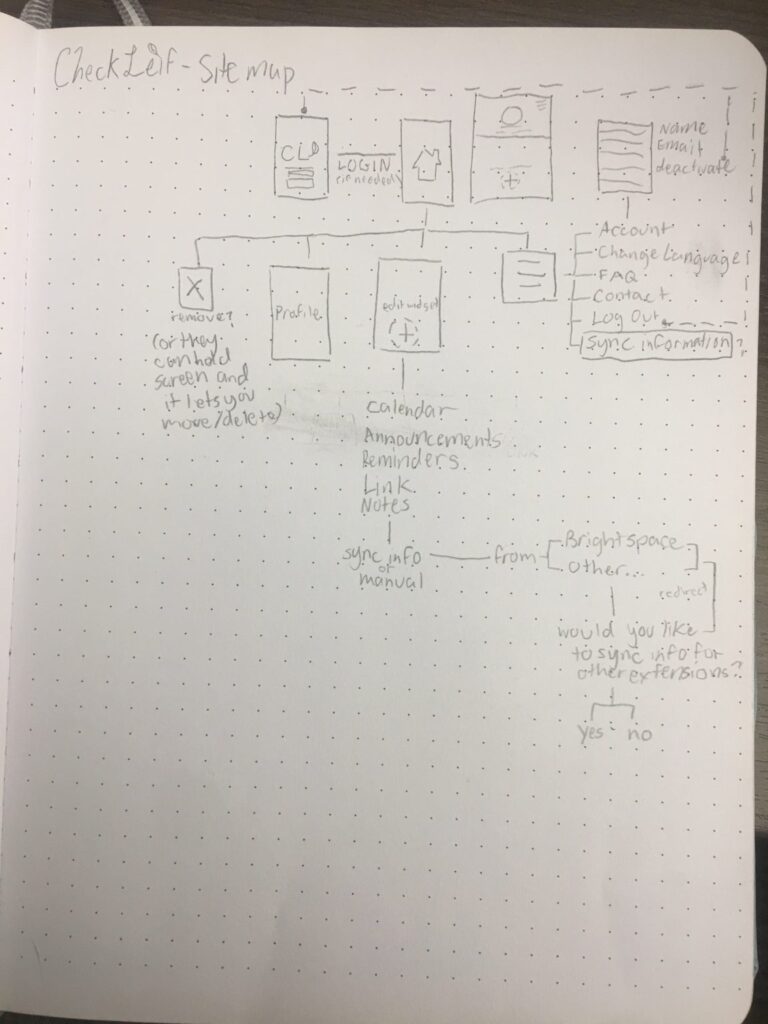 CheckLeif - Site map
CL
LOGIN
(if needed)
Name
Email
deactivate
Account
Change Language
FAQ
Contact
Log Out
Sync information?
X
remove?
(or they
can hold
screen and
it lets you
move/delete)
Profile
edit widget
+
+
Calendar
Announcements
Reminders
Link
Notes
sync info
or
manual
from
Brightspace
other...
redirect
would you like
to sync info for
other extensions?
yes no